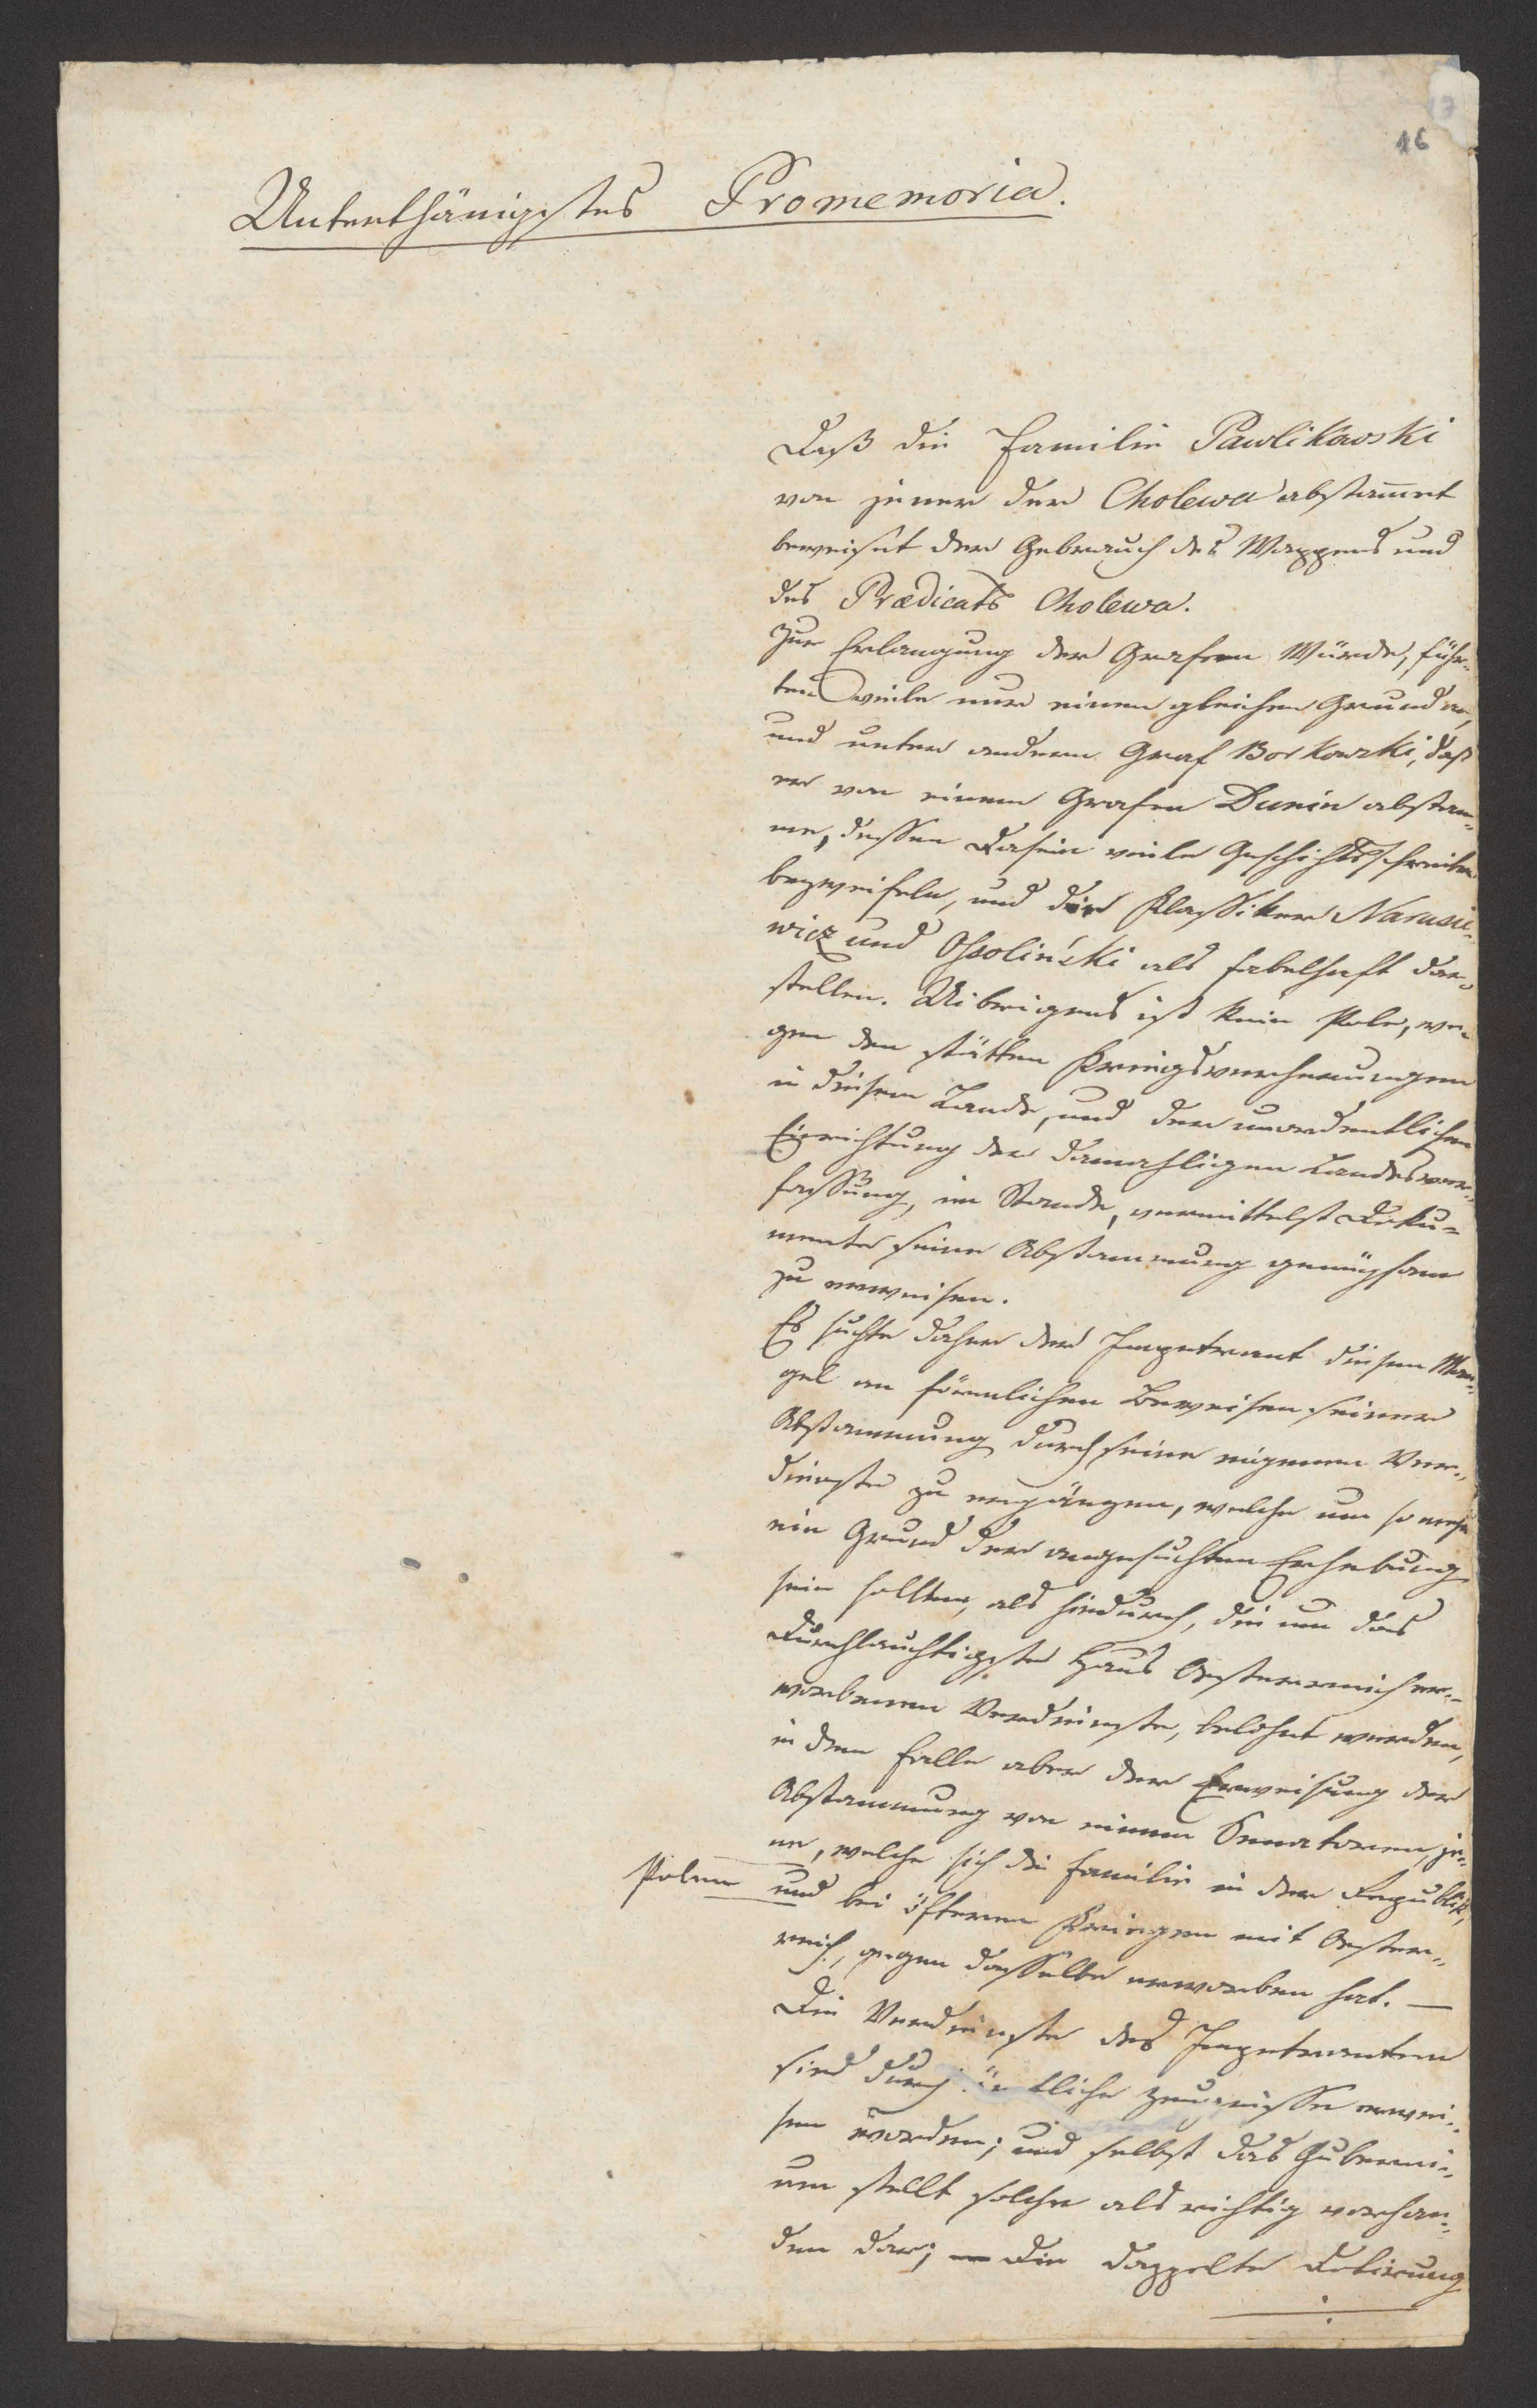 17
16
Unterthänigstes Promemoria.
Daß die Familie Pawlikowski
von jener der Cholewa abstam̄et
beweiset der Gebrauch des Wappens und
des Prædicats Cholewa.
Zur Erlangung der Grafen Würde, führ„
ten viele nur einen gleichen Grund an,
und unter andern Graf Borkowski, daß
er von einem Grafen Dunin abstam„
me, dessen Dasein viele Geschichtsschreiber
bezweifeln, und die Klassiker Narusze„
wicz und Ossoliński als fabelhaft dar„
stellen. Uibrigens ist kein Pole, we„
gen den stätten Kriegsverheerungen
in diesem Lande, und der unordentlichen
Einrichtung der damahligen Landesver„
fassung, im Stande, vermittelst Doku„
mente seine Abstammung genugsam
zu erweisen.
Es suchte daher der Impetrant diesen Man„
gel an förmlichen Beweisen seiner
Abstammung durch seine eigenen Ver„
dienste zu ergänzen, welche um so mehr
ein Grund der angesuchten Erhebung
sein sollten, als hiedurch, die um das
Durchlauchtigste Haus Oesterreich er„
worbenen Verdienste, belohnt werden,
in dem Falle aber der Erweisung der
Abstammung von einem Senatoren, je„
ne, welche sich die Familie in der Republik,
Polen und bei öfteren Kriegen mit Oester„
reich, gegen dasselbe erworben hat. —
Die Verdienste des Impetranten
sind durch ämtliche Zeugnisse erwie„
sen worden; und selbst das Guberni„
um stellt solche als richtig vorhan„
den dar; die doppelte Dotirung